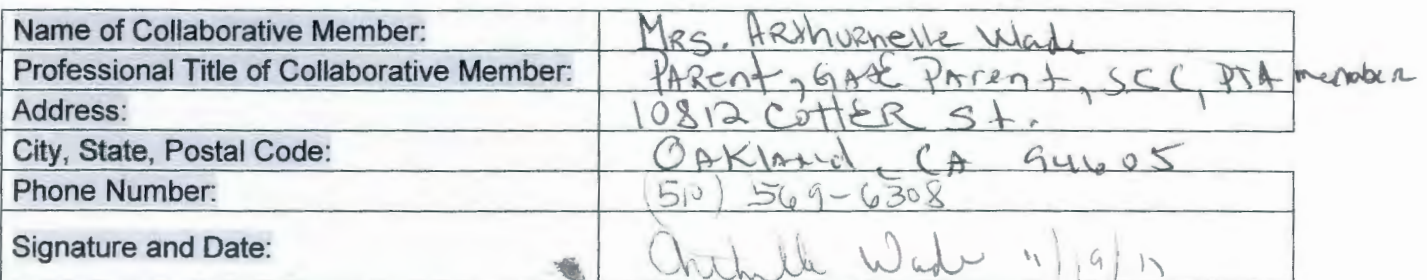 Name of Collaborative Member: Mrs. Arthurnelle Wade
Professional Title of Collaborative Member: Parent, GATE Parent, SSC, PTA member
Address: 10812 Cotter St.
City, State, Postal Code: Oakland, CA 94605
Phone Number: (510) 569-6308
Signature and Date: Wade